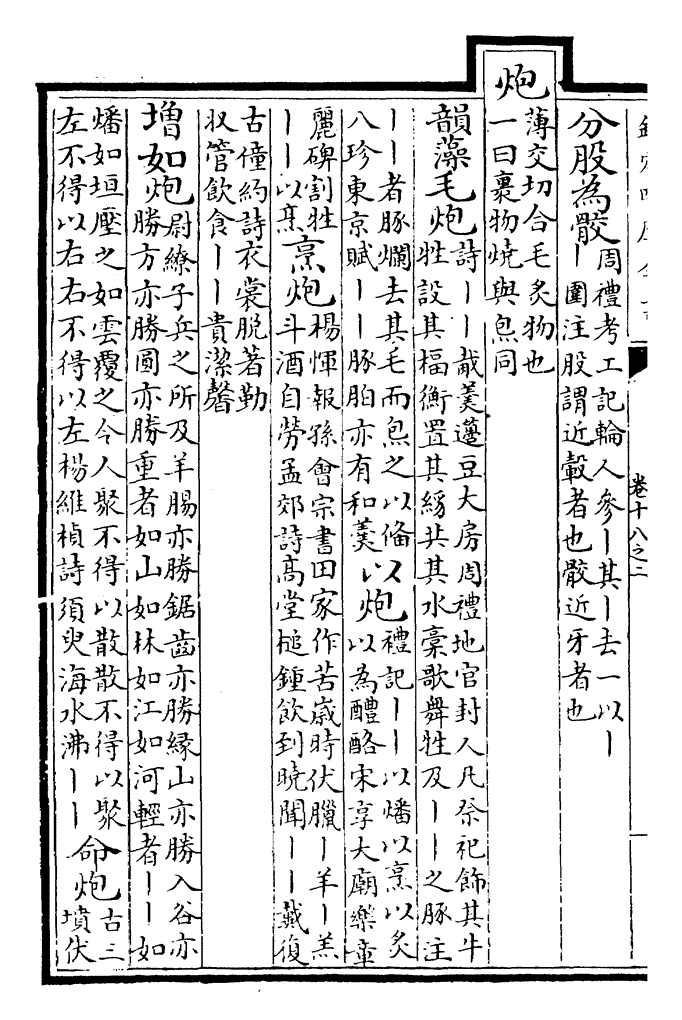 卷十八之二
分股為骹周禮考工記輪人參丨其丨去一以丨
丨圍注股謂近轂者也骹近牙者也
炮薄交切合毛炙物也
一曰裹物燒與炰同
韻藻毛炮詩丨丨胾羹籩豆大房周禮地官封人凡祭祀飾其牛
牲設其楅衡置其絼共其水槀歌舞牲及丨丨之豚注
丨丨者豚爛去其毛而炰之以備
八珍東京賦丨丨豚胉亦有和羹
以炮禮記丨丨以燔以烹以炙
以為醴酪宋享大廟樂章
麗碑割牲
丨丨以烹
烹炮楊惲報孫會宗書田家作苦歲時伏臘丨羊丨羔
斗酒自勞孟郊詩髙堂搥鍾飲到曉聞丨丨戴復
古僮約詩衣裳脫著勤
收管飲食丨丨貴潔馨
增如炮尉繚子兵之所及羊腸亦勝鋸齒亦勝緣山亦勝入谷亦
勝方亦勝圓亦勝重者如山如林如江如河輕者丨丨如
燔如垣壓之如雲覆之令人聚不得以散散不得以聚
左不得以右右不得以左楊維楨詩須臾海水沸丨丨
命炮古三
墳伏